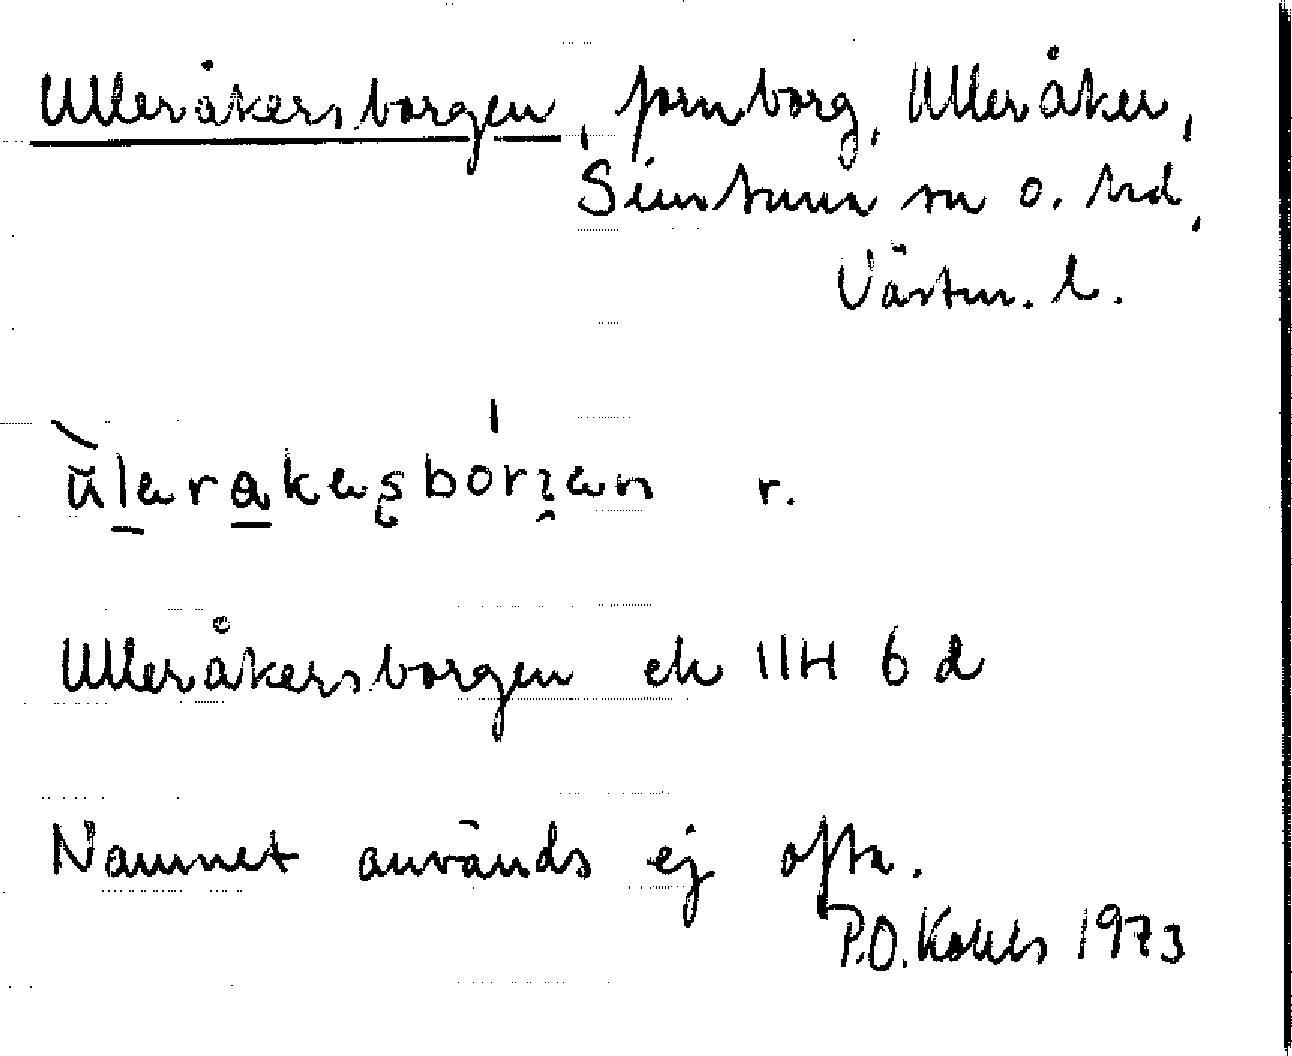 Ulleråkersborgen, fornborg, Ulleråker,
Simtuna sn o. hd,
Västm. l.
r.
Ulleråkersborgen ek 11H 6d
Namnet används ej ofta.
P.O. 1973